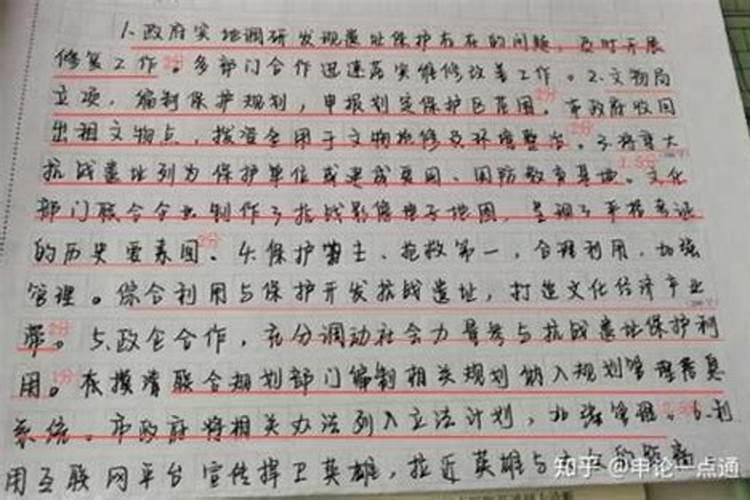 1.政府实地调研发现遗址保护存在的问题，及时开展
修复工作。多部门合作迅速落实维修改善工作。2.文物局
立项，编制保护规划，申报划定保护区范围。市政府收回
出租文物点，拨资金用于文物抢修及环境整治。3.将重大
抗战遗址列为保护单位或建成爱国、国防教育基地。文化
部门联合企业制作了抗战影像电子地图，呈现了平
的历史要素图。4.保护为主、抢救第一，合理利用，加强
管理。综合利用与保护开发抗战遗址，打造文化经济产业
带。5.政企合作，充分调动社会力量参与抗战遗址保护利
用。在摸清联合规划部门编制相关规划纳入规划管理信息
系统。市政府将相关办法列入立法计划，加强管理。6.利
用互联网平台宣传捍卫英雄，拉近英雄与
知乎 @申论一点通